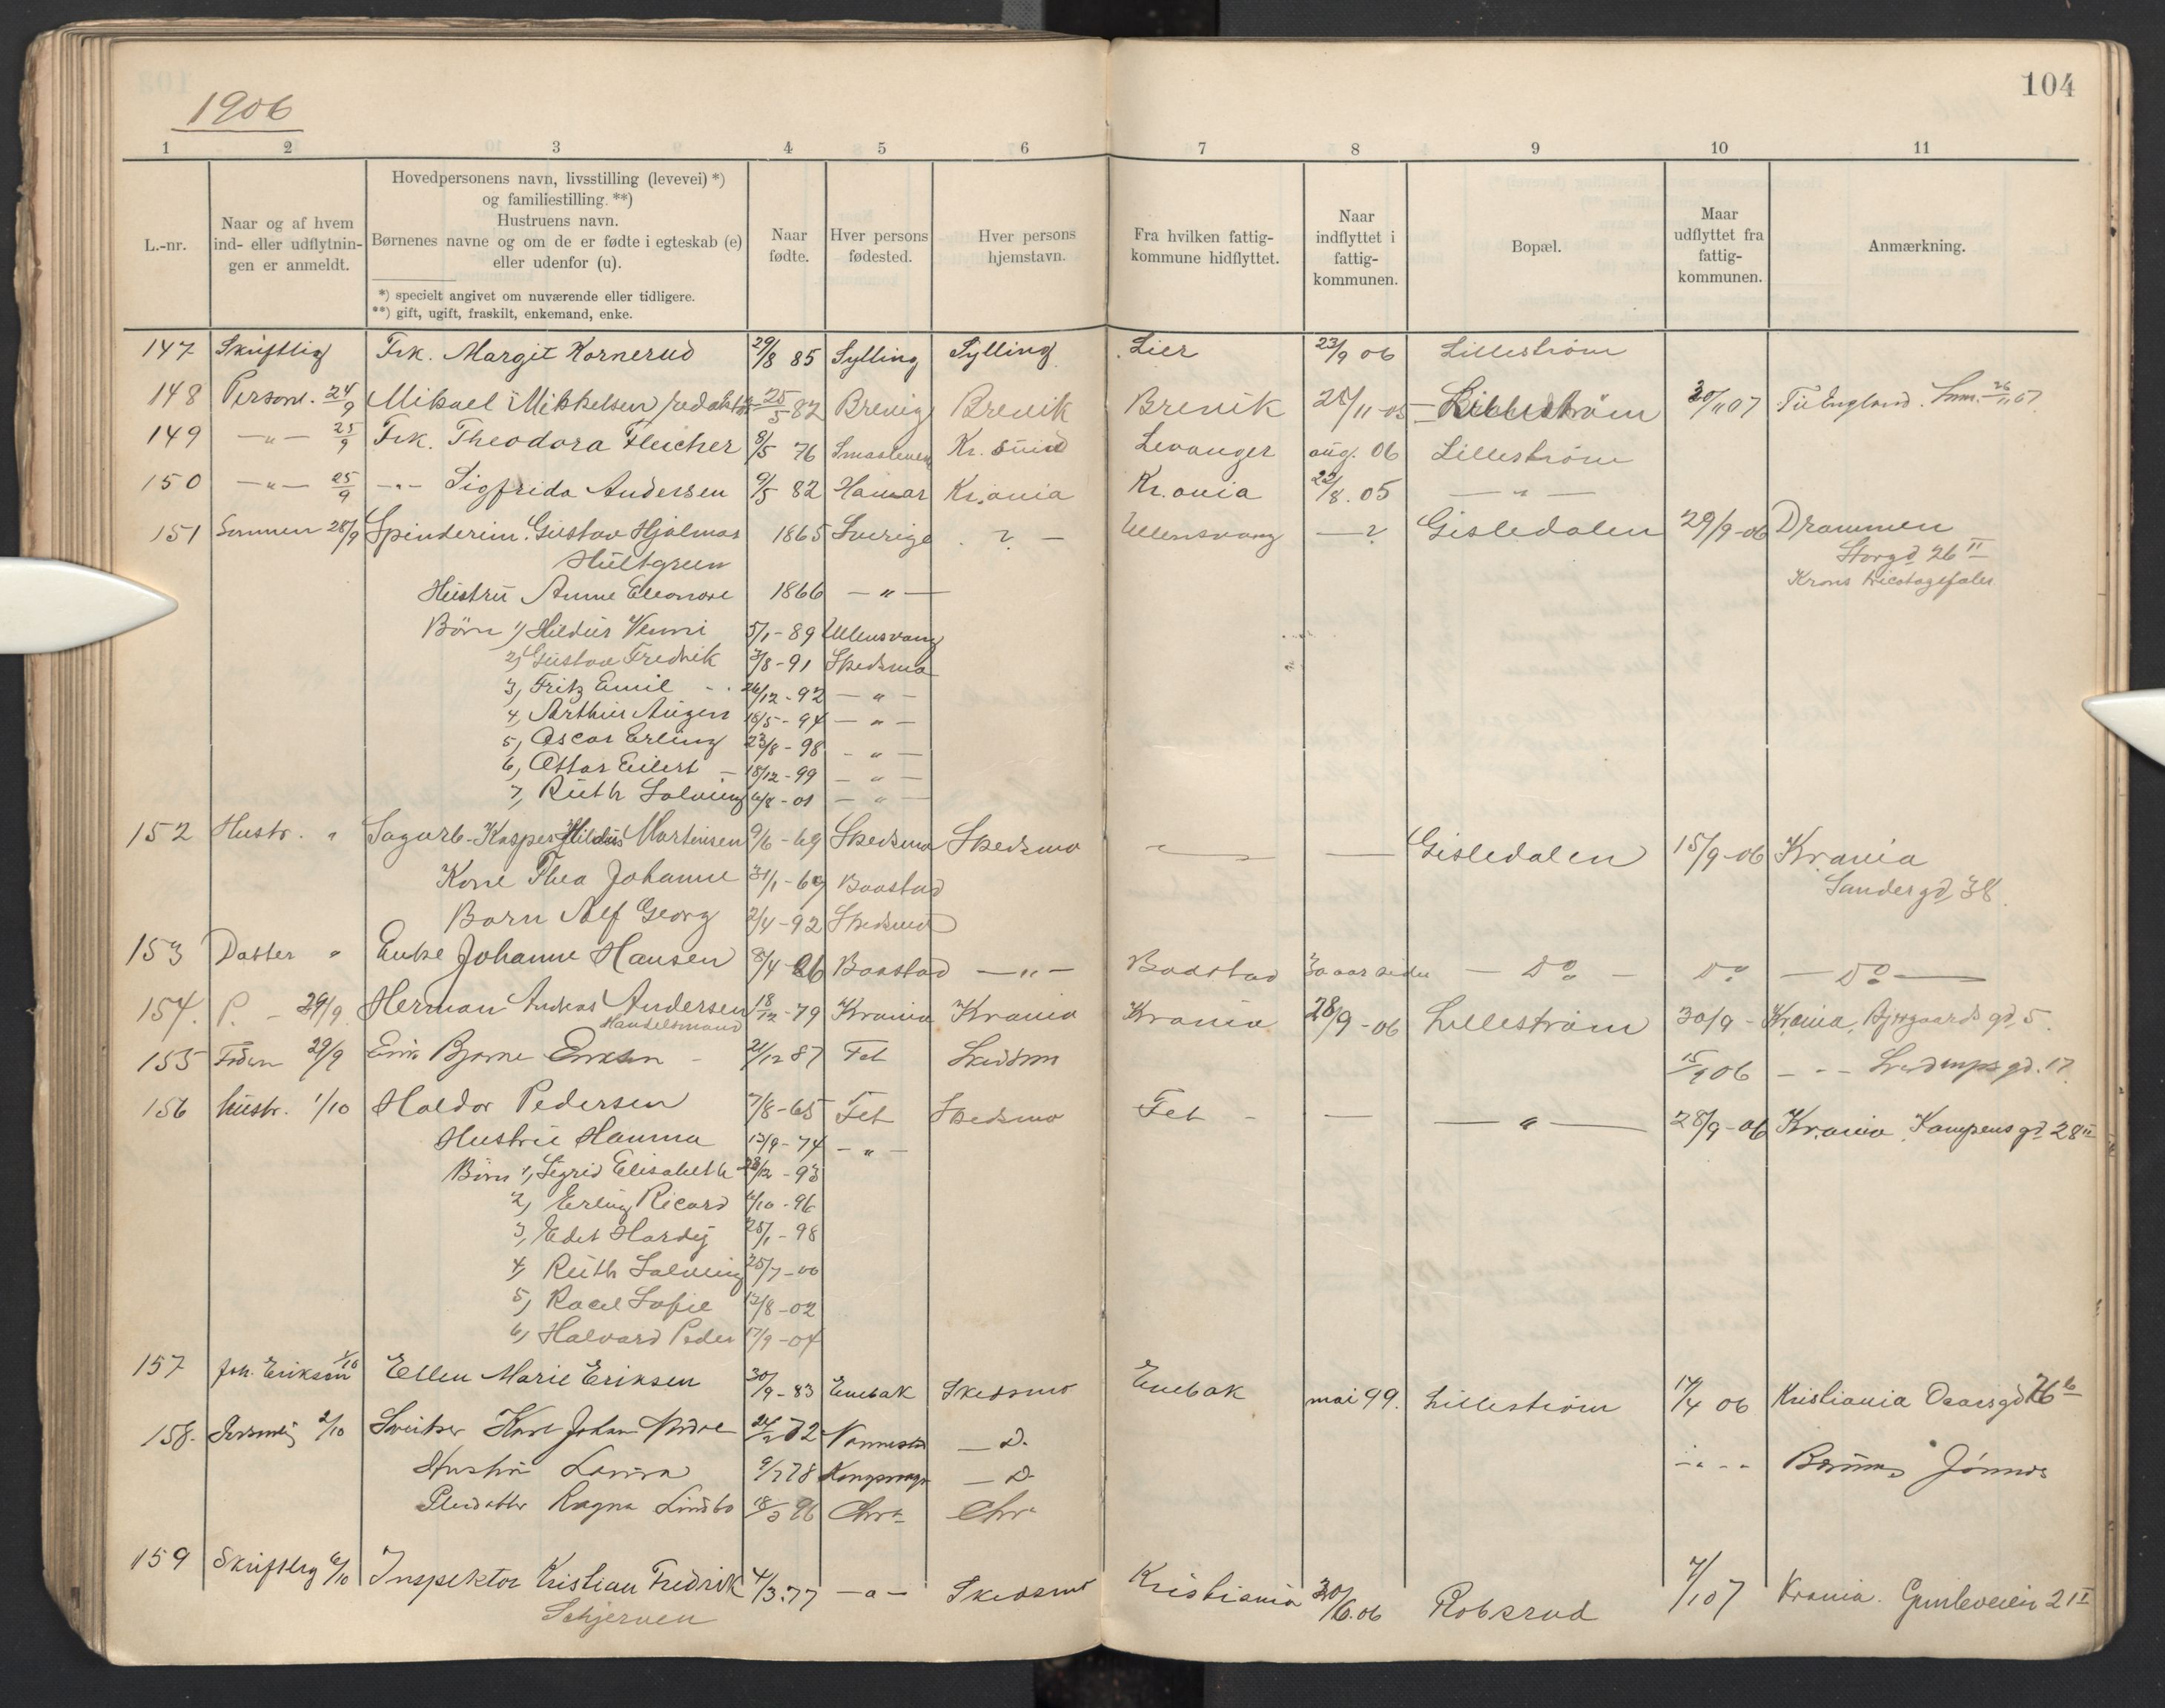 104
1906
1 2 3 4 5 6 7 8 9 10 11
L.-nr.
Naar og af hvem ind- eller udflytnin- gen er anmeldt.
Hovedpersonens navn, livsstilling (levevei) *)
og familiestilling. **)
Hustruens navn.
Børnenes navne og om de er fødte i egteskab (e)
eller udenfor (u).
*) specielt angivet om nuværende eller tidligere.
**) gift, ugift, fraskilt, enkemand, enke.
Naar fødte.
Hver persons fødested.
Hver persons hjemstavn.
Fra hvilken fattig- kommune hidflyttet.
Naar indflyttet i fattig- kommunen.
Bopæl.
Maar udflyttet fra fattig- kommunen.
Anmærkning.
147 Skriftlig Frk. Margit Kornerud 29/8 85 Sylling Sylling Lier 23/9 06 Lilleström
148 Person. 24/9 Mikael Mikkelsen redaktør 25/5 82 Brevig Brevik Brevik 28/11-05 Lilleström 30/11 07 Til England. 26/11 07
149 —"— 25/9 Frk. Theodora Fleicher 8/5 76 Kr. sund Levanger aug. 06 Lilleström
150 —"— 25/9 —"— Sigfrida Andersen 9/5 82 Hamar Kr.ania Kr.ania 22/8. 05 —"—
151 Sønnen 28/9 Spinderim. Gustav Hjalmar 1865 Sverige ? — Ullensvang —? Gisledalen 29/9-06 Drammen
Hultgreen Storgd 26 II
Krons tricotagefabr
Hustru Anne Eleonore 1866 —"—
Børn 1) Hildur Venni 5/1-89 Ullensvang
2) Gustav Fredrik 3/8-91 Skedsmo
3, Fritz Emil 26/12-92 —"—
4, Arthur August 18/5-94 —"—
5, Oscar Erling 23/8-98 —"—
6, Ottar Eilert — 18/12-99 —"—
7, Ruth Solveig 4/8-01 —"—
152 Hustr. " Sagarb. Kasper Hildus Martinsen 9/6-69 Skedsmo Skedsmo — — Gisledalen 15/9-06 Krania
Kone Thea Johanne 31/1-69 Baastad Sandergd 38.
Barn Alf Georg 2/4-92 Skedsmo
153 Datter " Enke Johanne Hansen 8/4-26 Baastad —"— Baastad 30 aar siden — Do — Do — Do —
154. P. - 29/9 Herman Andreas Andersen 18/12-79 Krania Krania Krania 28/9-06 Lilleström 30/9 - Krania, gd, 5.
Handelsmand
155 29/9 Bjarne Eriksen 21/12 87 Fet Skedsmo 15/9 06 —"— gd. 17
156 hustr. 1/10 Haldor Pedersen 7/8-65 Fet Skedsmo Fet - — —"— 28/9-06 Kr.ania Kampensgd 28 II
Hustru Hanna 12/9-74 —"—
Børn 1, Sigrid Elisabeth 28/12-93
2, Erling Ricard 4/10-96
3, Edit Hardy 25/1-98
4, Ruth Solveig 25/7-00
5, Racel Sofie 12/8-02
6, Halvard Peder 17/9-04
157 Joh. Eriksen 1/10 Ellen Marie Eriksen 30/9-83 Enebak Skedsmo Enebak mai 99. Lilleström 17/4 06 Kristiania gd 76 b
158. Personlig 2/10 Sveitser Karl Johan 24/2 72 Nannestad —D. —"— Bærums
Hustru Lovisa 9/7 78 —D-
Pleidatter Ragna Lindbo 18/5 96 Chr.a Chr.a
159 Skriftlig 6/10 Inspektør Kristian Fredrik 4/3.77 —"— Skedsmo Kristiania 30/6.06 Robsrud 7/1 07 Krania. Gimleveien 2 II
Schjerven